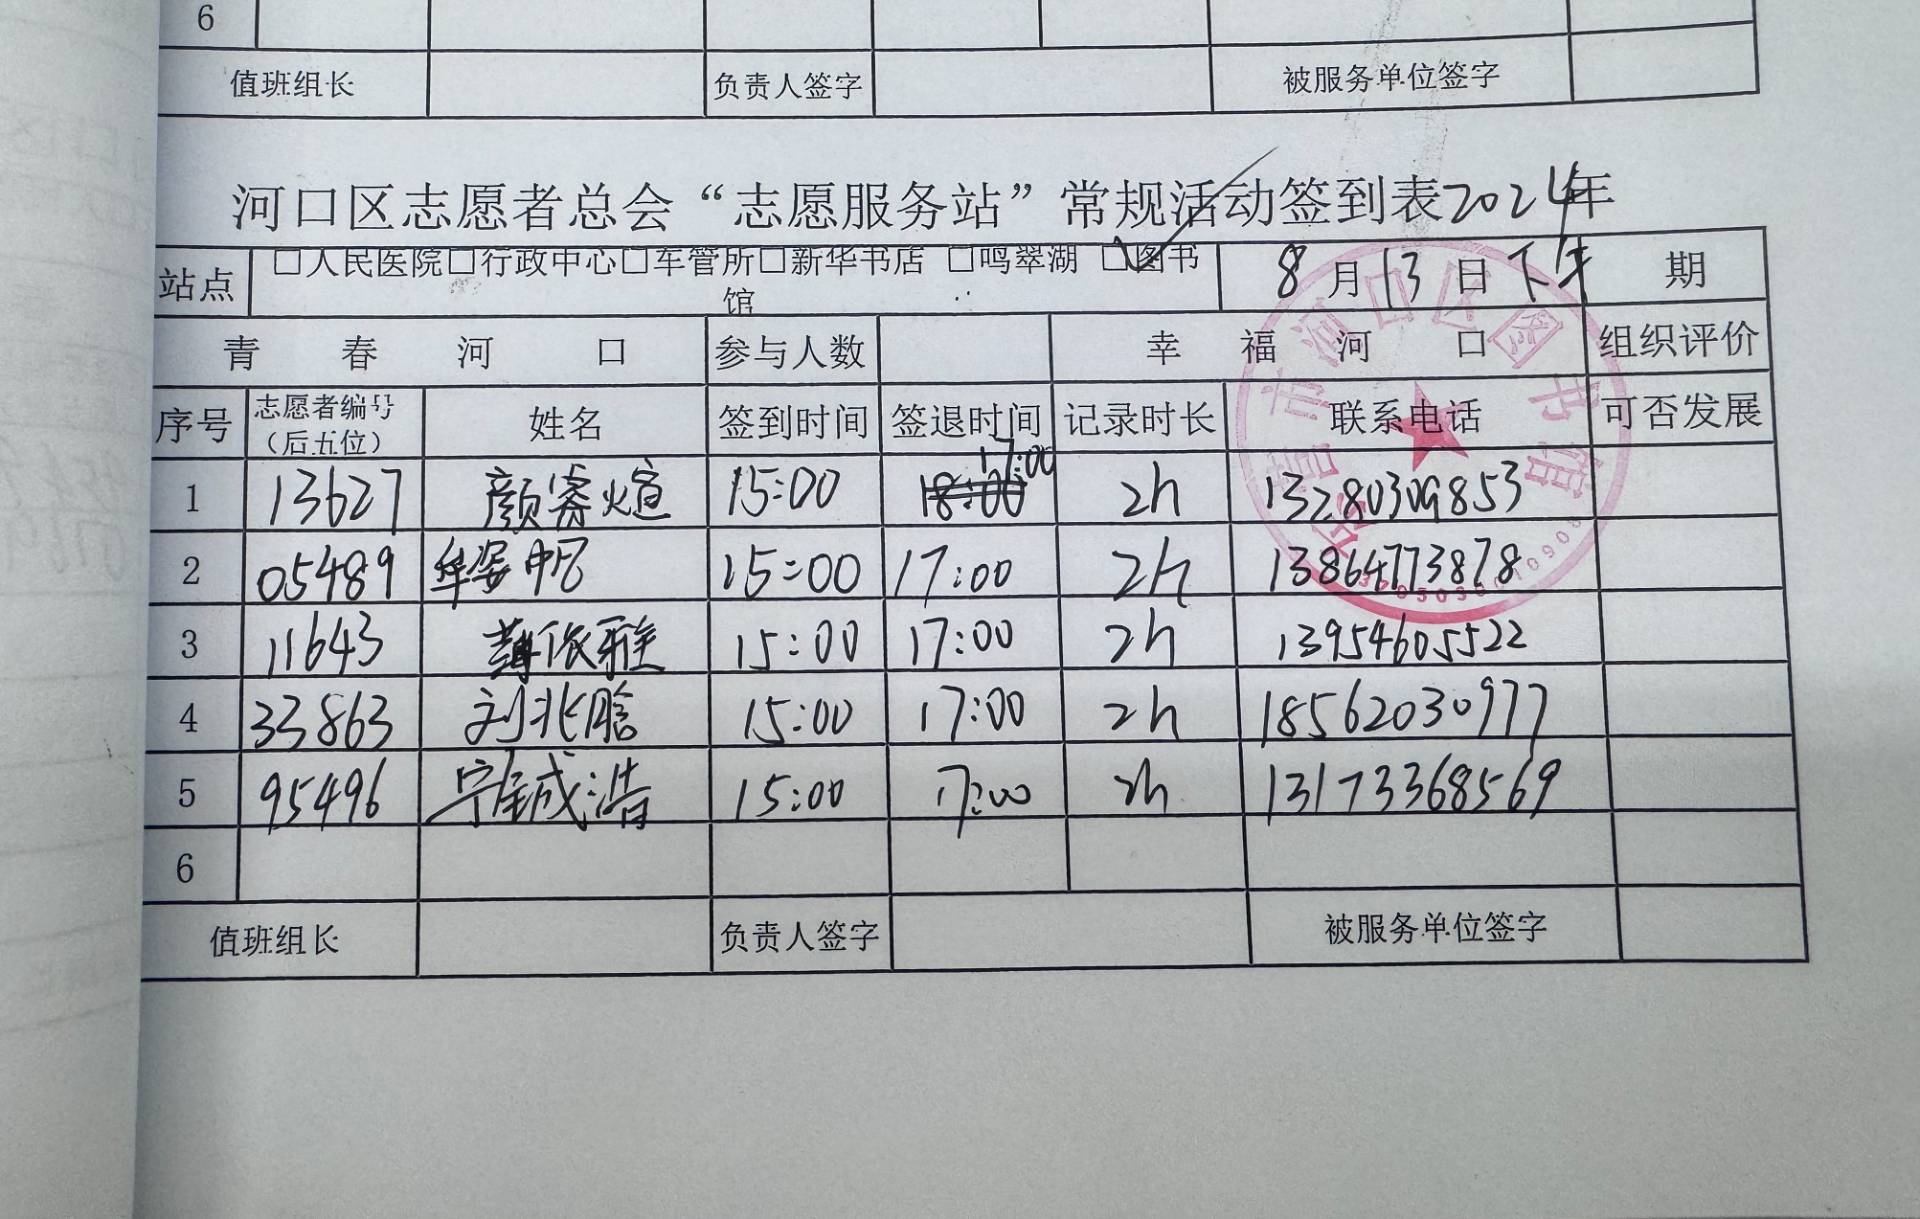 6
值班组长 负责人签字 被服务单位签字
河口区志愿者总会“志愿服务站”常规活动签到表2024年
站点 □人民医院□行政中心□车管所□新华书店 □鸣翠湖 ☑图书馆 8月13日下午 期
青春河口 参与人数 幸福河口 组织评价
序号 志愿者编号（后五位） 姓名 签到时间 签退时间 记录时长 联系电话 可否发展
1 13627 颜 煊 15:00 17:00 2h 13280309853
2 05489 15:00 17:00 2h 13864773878
3 11643 薄依雅 15:00 17:00 2h 13954605522
4 33863 刘兆晗 15:00 17:00 2h 18562030977
5 95496 宁 浩 15:00 17:00 2h 13173368569
6
值班组长 负责人签字 被服务单位签字
东营市河口区图书馆